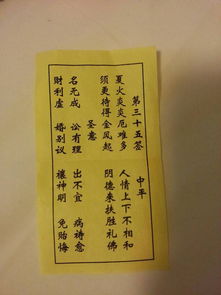 第三十五签 中平
夏火炎炎厄难多 人情上下不相和
须更待得金风起 阴德来扶胜礼佛
圣意
名无成 讼有理 出不宜 病祷愈
财利虚 婚别议 禳神明 免贻悔